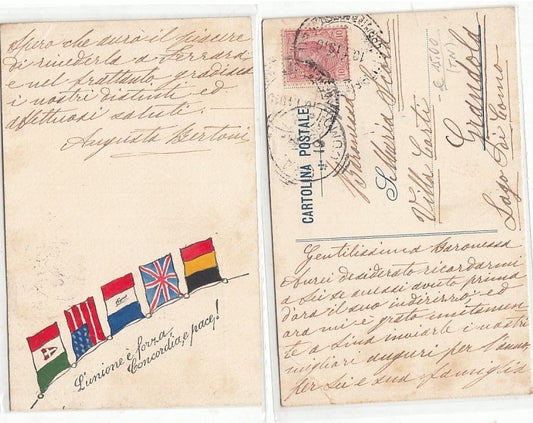 Spero che avrò il piacere
di rivederla a Ferrara
e nel frattempo gradisca
i nostri distinti ed
affettuosi saluti.
Augusta Bertoni
L'unione è forza,
Concordia, e pace,!
CARTOLINA POSTALE
Baronessa
S. Maria Nicoli
Villa Carti
Grandola
Lago Di Como
Gentilissima Baronessa
Avrei desiderato ricordarmi
a Lei se avessi avuto prima
d'ora il suo indirizzo, ed
ora mi è grato unitamente
a Lina inviarle i nostri
migliori auguri per l'anno,
per Lei e sua famiglia